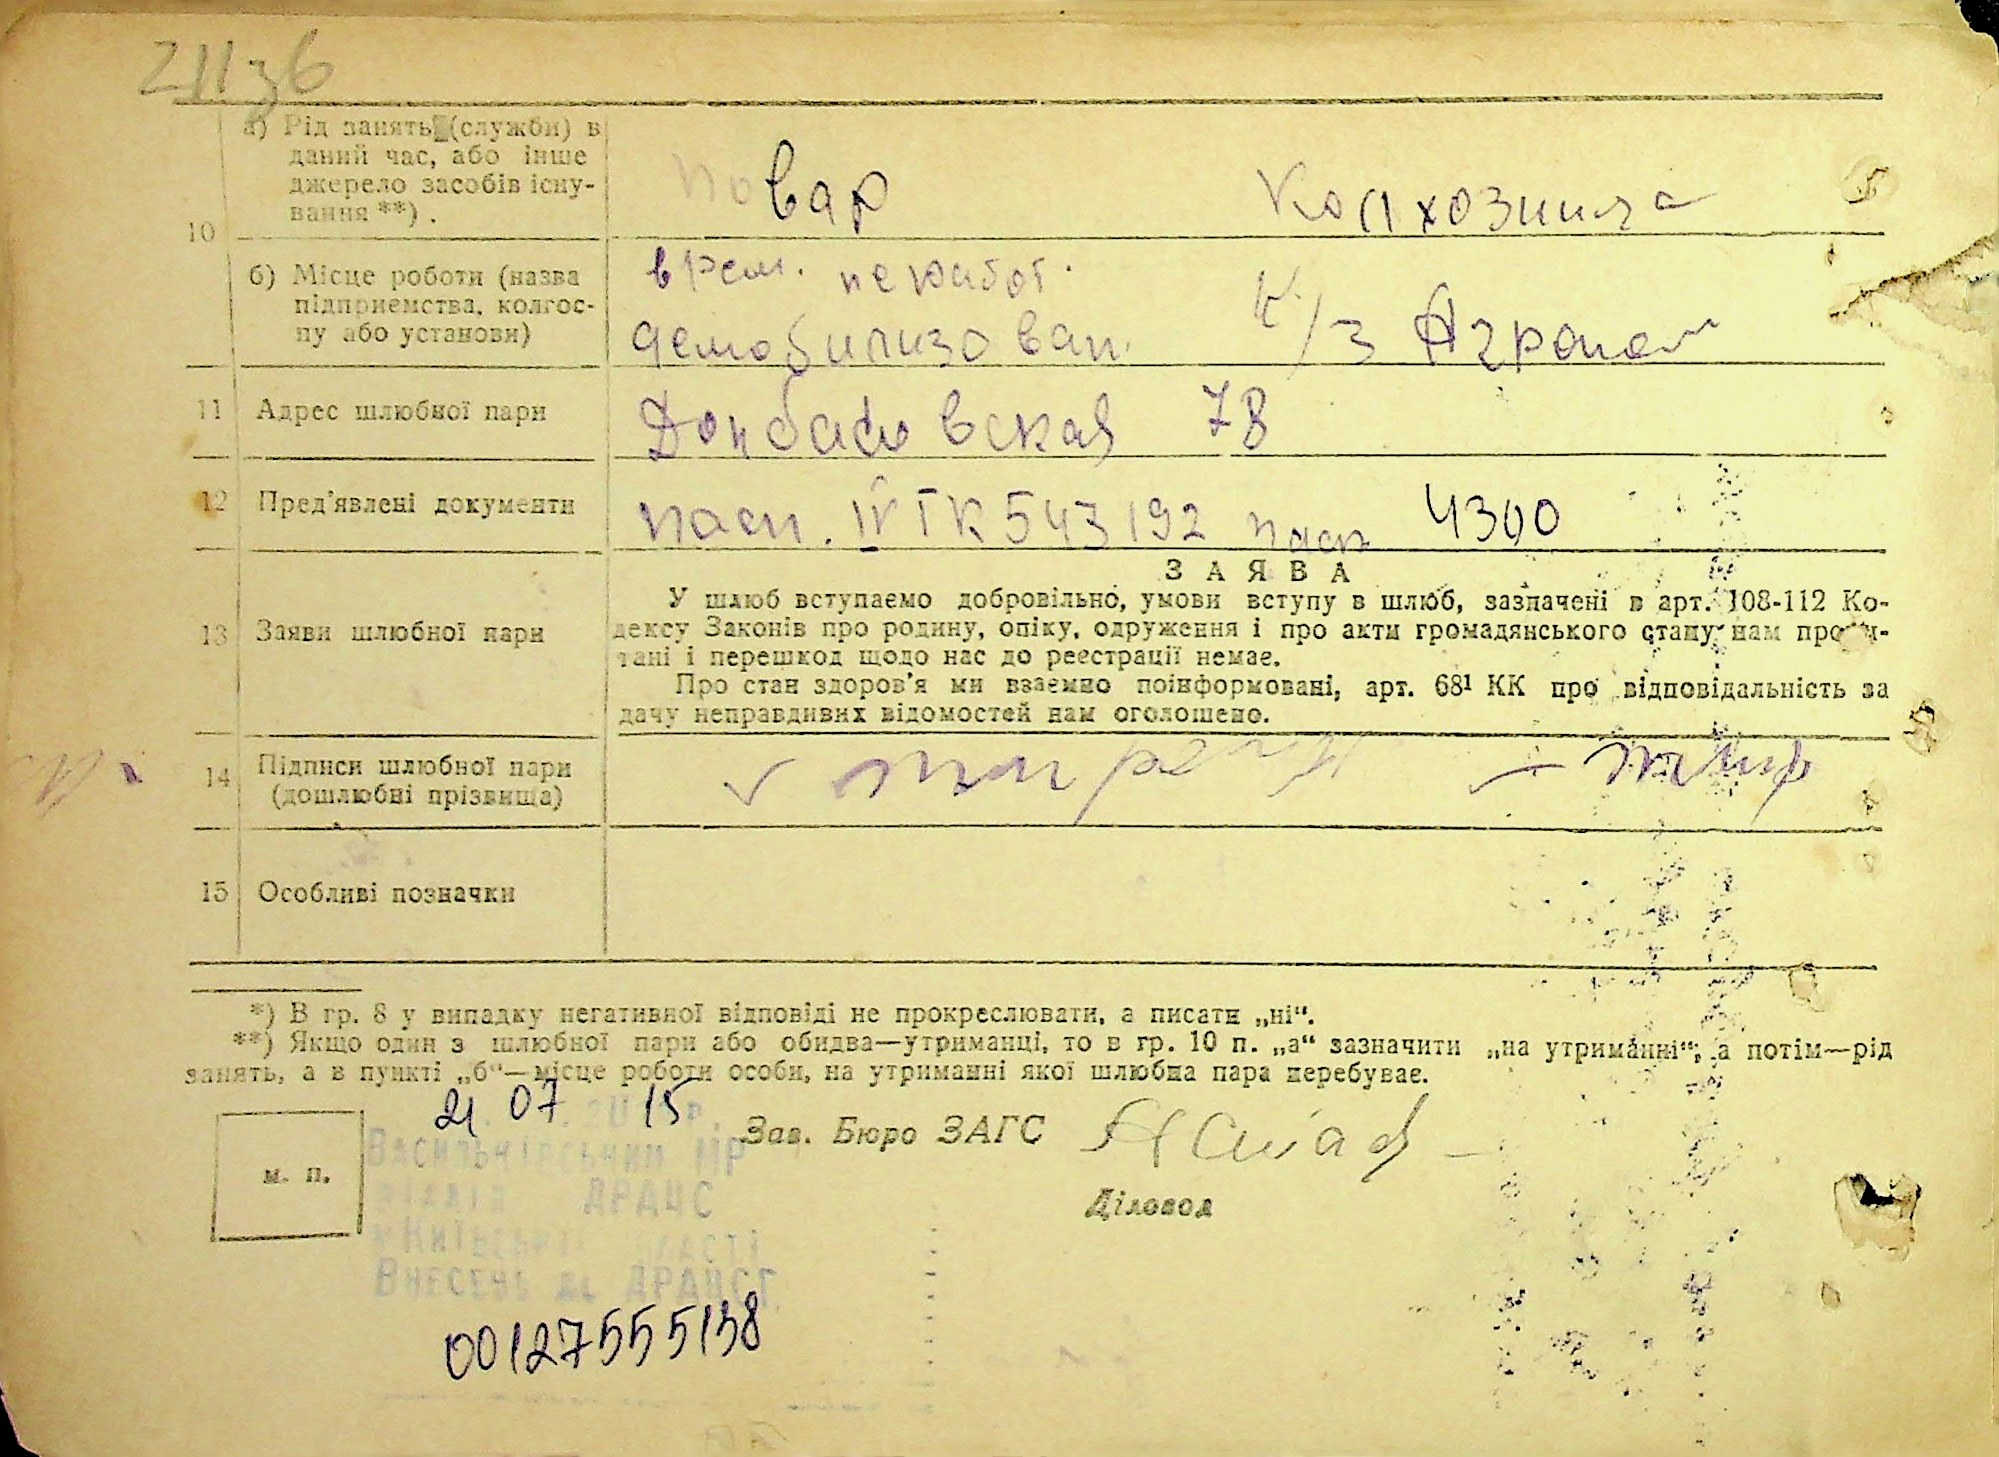 а) Рід занять (служби) в
даний час, або інше
джерело засобів існу-
вання **).
повар Колхозница
10
б) Місце роботи (назва
підприємства, колгос-
пу або установи)
врем. не работ.
демобилизован. К/з Агроном
11 Адрес шлюбної пари
Донбасовская 78
12 Пред'явлені документи
пасп. IV ГК 543192 пасп 4300
13 Заяви шлюбної пари
ЗАЯВА
У шлюб вступаємо добровільно, умови вступу в шлюб, зазначені в арт. 108-112 Ко-
дексу Законів про родину, опіку, одруження і про акти громадянського стану нам прочи-
тані і перешкод щодо нас до реєстрації немає.
Про стан здоров'я ми взаємно поінформовані, арт. 68¹ КК про відповідальність за
дачу неправдивих відомостей нам оголошено.
14 Підписи шлюбної пари
(дошлюбні прізвища)
15 Особливі позначки
*) В гр. 8 у випадку негативної відповіді не прокреслювати, а писати „ні“.
**) Якщо один з шлюбної пари або обидва—утриманці, то в гр. 10 п. „а“ зазначити „на утриманні“, а потім—рід
занять, а в пункті „б“—місце роботи особи, на утриманні якої шлюбна пара перебуває.
21 07 2015р
Васильківський МР
відділ ДРАЦС
Київської області
Внесено до ДРАЦСГ
м. п.
Зав. Бюро ЗАГС
Діловод
00127555138